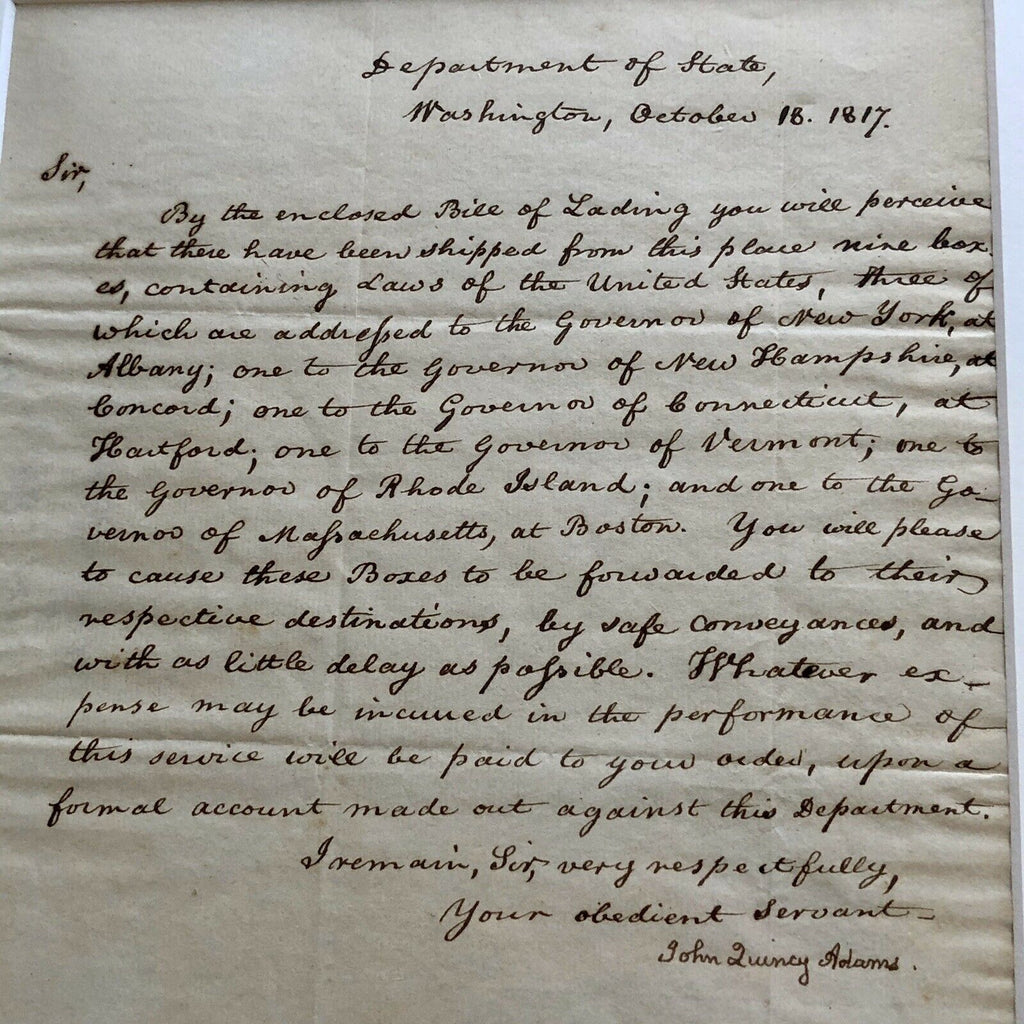 Department of State,
Washington, October 18. 1817.
Sir,
By the enclosed Bill of Lading you will perceive
that there have been shipped from this place nine box
es, containing Laws of the United States, three of
which are addressed to the Governor of New York, at
Albany; one to the Governor of New Hampshire, at
Concord; one to the Governor of Connecticut, at
Hartford; one to the Governor of Vermont; one to
the Governor of Rhode Island; and one to the Go-
vernor of Massachusetts, at Boston. You will please
to cause these Boxes to be forwarded to their
respective destinations, by safe conveyances, and
with as little delay as possible. Whatever ex-
pense may be incurred in the performance of
this service will be paid to your order, upon a
formal account made out against this Department.
I remain, Sir, very respectfully,
Your obedient Servant-
John Quincy Adams.